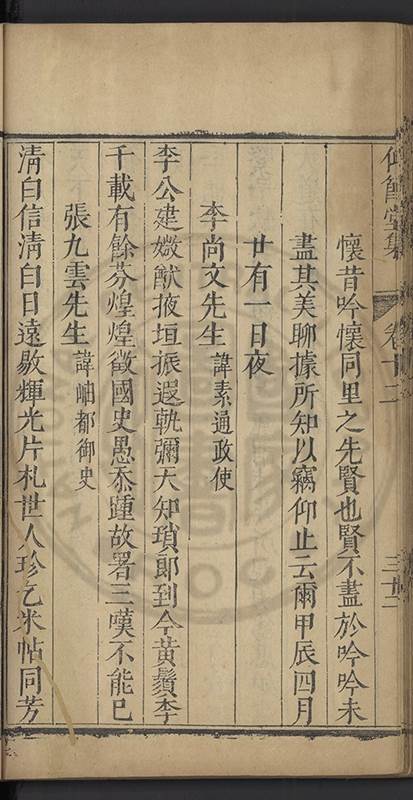 仰節堂集 卷十二 三十二
懷昔吟懷同里之先賢也賢不盡於吟吟未
盡其美聊據所知以竊仰止云爾甲辰四月
廿有一日夜
李尚文先生諱素通政使
李公建嫩猷掖垣振遐軌彌天知瑣郎到今黃鬚李
千載有餘芬煌煌徵國史愚忝踵故署三嘆不能已
張九雲先生諱岫都御史
清白信清白日遠歇輝光片札世人珍乞米帖同芳